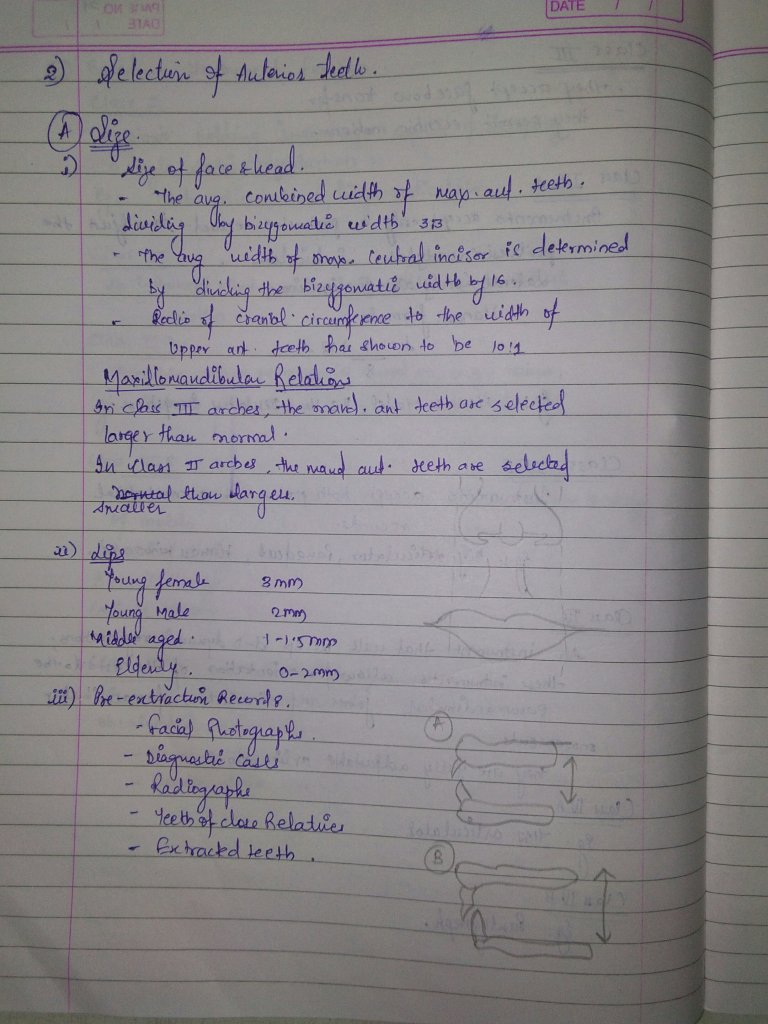 DATE / /
2) Selection of Anterior teeth.
A Size.
i) Size of face & head.
- The avg. combined width of max. ant. teeth.
dividing by bizygomatic width 3.3
- The avg width of max. Central incisor is determined
by dividing the bizygomatic width by 16.
- Radio of cranial circumference to the width of
Upper ant. teeth has shown to be 10:1
Maxillomandibular Relations
In class III arches, the mand. ant teeth are selected
larger than normal.
In Class II arches, the mand ant. teeth are selected
normal than larger.
smaller
ii) Lips
Young female 3mm
Young Male 2mm
Middle aged. 1-1.5mm
Elderly. 0-2mm
iii) Pre-extraction Records.
- Facial Photographs.
- Diagnostic Casts
- Radiographs
- Teeth of close Relatives
- Extracted teeth.
A
B